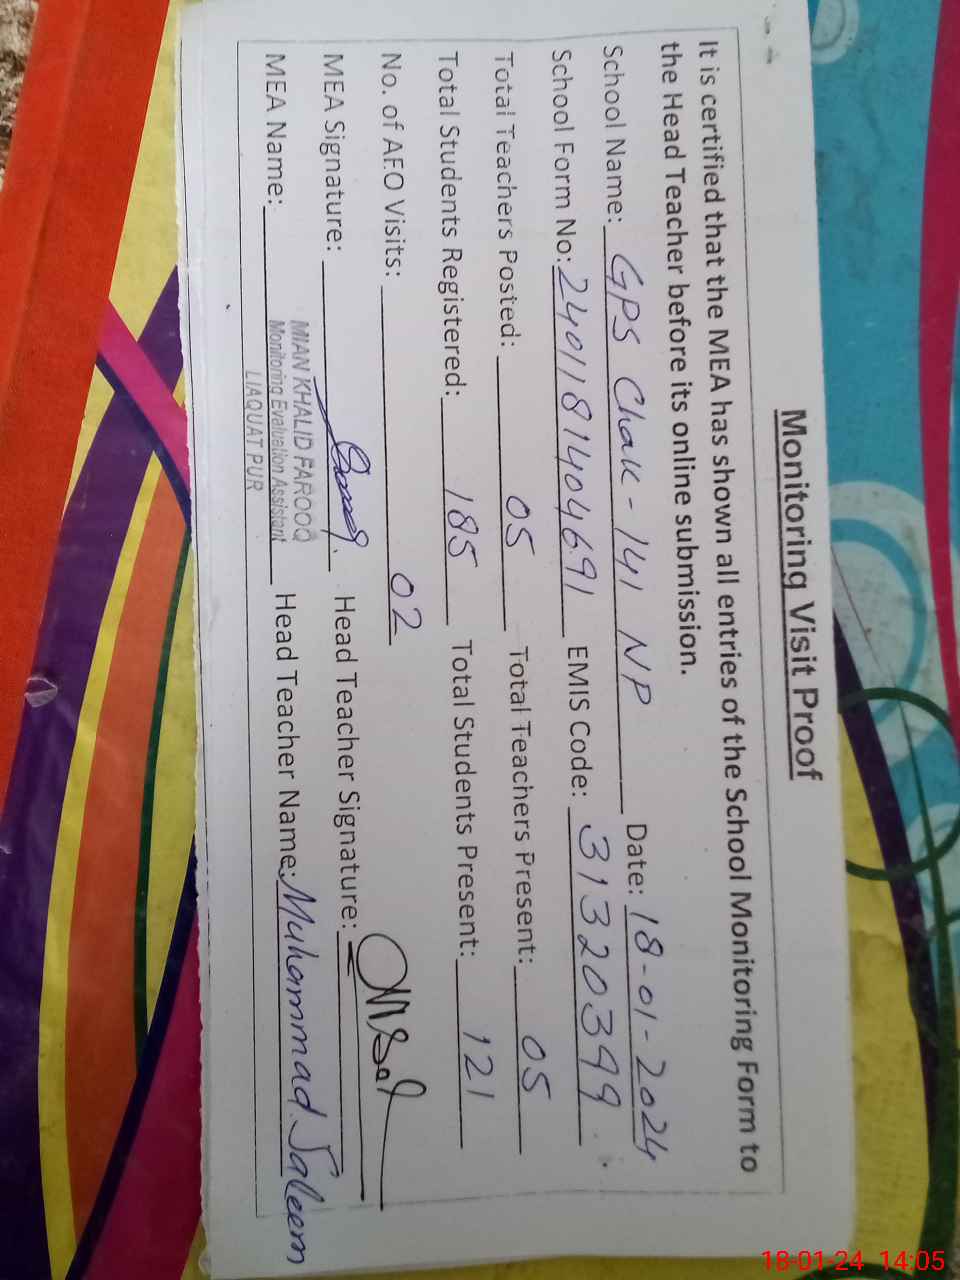 Monitoring Visit Proof
It is certified that the MEA has shown all entries of the School Monitoring Form to
the Head Teacher before its online submission.
School Name: GPS Chak - 141 NP Date: 18-01-2024
School Form No: 2401181404691 EMIS Code: 31320399
Total Teachers Posted: 05 Total Teachers Present: 05
Total Students Registered: 185 Total Students Present: 121
No. of AEO Visits: 02
MEA Signature: Head Teacher Signature:
MIAN KHALID FAROOQ
MEA Name: Monitoring Evaluation Assistant Head Teacher Name: Muhammad Saleem
LIAQUAT PUR
18-01-24 14:05